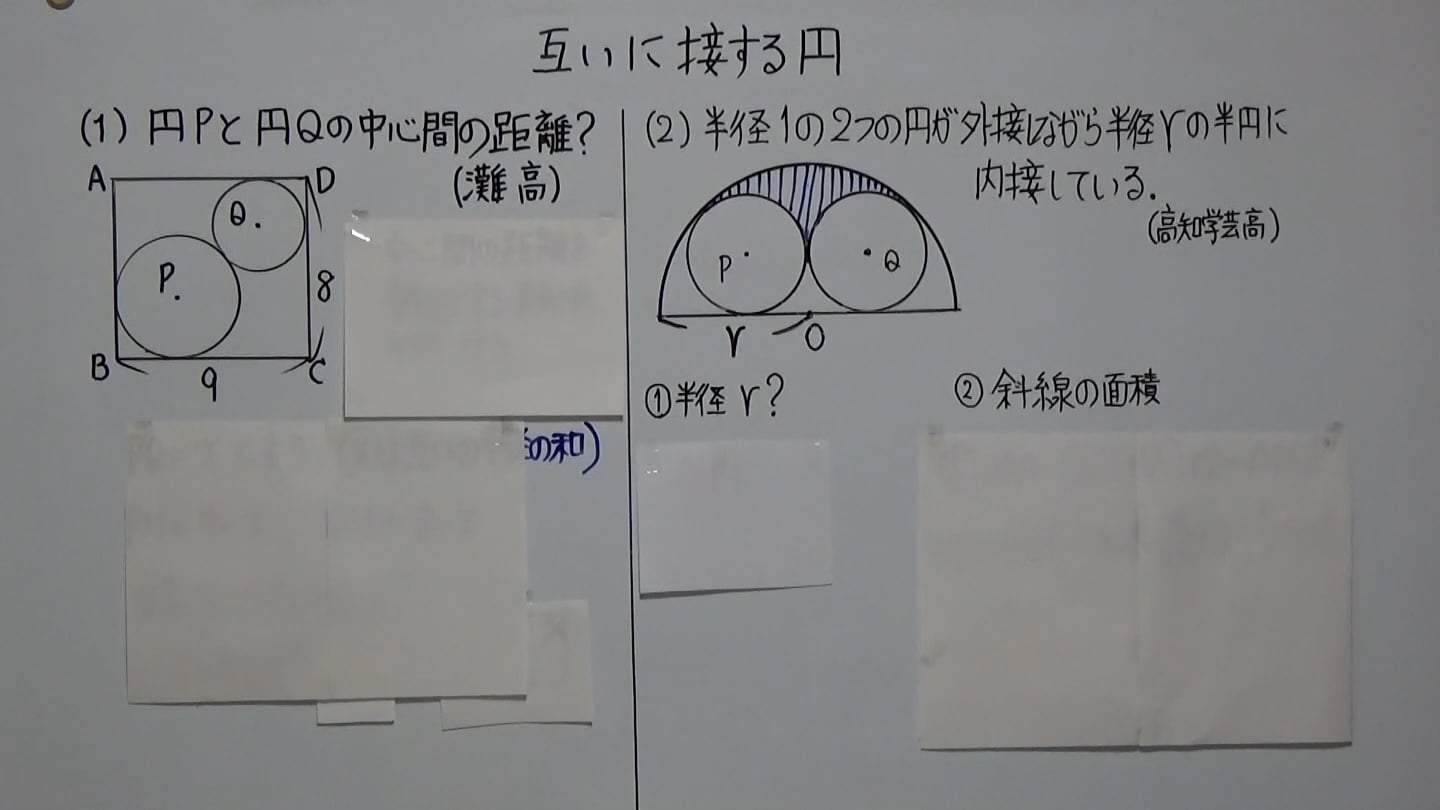 互いに接する円
(1) 円Pと円Qの中心間の距離?
(灘高)
A
D
Q
P
8
B
9
C
の和)
(2) 半径1の2つの円が外接しながら半径rの半円に
内接している.
(高知学芸高)
P
Q
r
O
①半径 r?
②斜線の面積